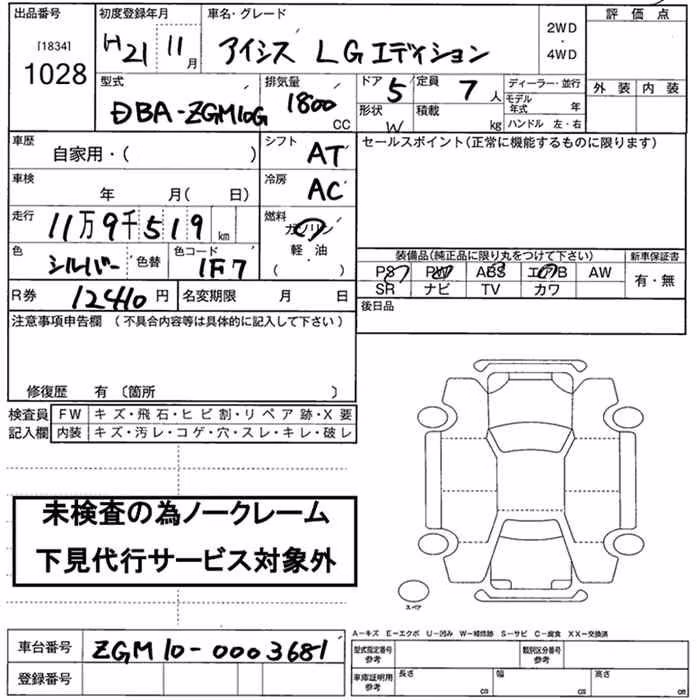 出品番号 [1834] 1028
初度登録年月 H21 11月
車名・グレード アイシス LGエディション
2WD・4WD
評価点
外装 内装
型式 DBA-ZGM10G
排気量 1800 CC
ドア 5
形状 W
定員 7人
積載 kg
ディーラー・並行
モデル年式 年
ハンドル 左・右
車歴 自家用・( )
シフト AT
セールスポイント(正常に機能するものに限ります)
車検 年 月( 日)
冷房 AC
走行 11万9千519km
燃料 ガソリン 軽・油 ( ・ )
色 シルバー 色替
色コード 1F7
装備品(純正品に限り丸をつけて下さい)
新車保証書 有・無
PS PW ABS エアB AW
SR ナビ TV カワ
R券 12410円
名変期限 月 日
後日品
注意事項申告欄 (不具合内容等は具体的に記入して下さい)
修復歴 有 〔箇所 〕
検査員記入欄
FW キズ・飛石・ヒビ割・リペア跡・X要
内装 キズ・汚レ・コゲ・穴・スレ・キレ・破レ
未検査の為ノークレーム
下見代行サービス対象外
スペア
A-キズ E-エクボ U-凹み W-補修跡 S-サビ C-腐食 XX-交換済
車台番号 ZGM10-0003681
登録番号
型式指定番号 参考
類別区分番号 参考
車庫証明用 参考
長さ cm 幅 cm 高さ cm